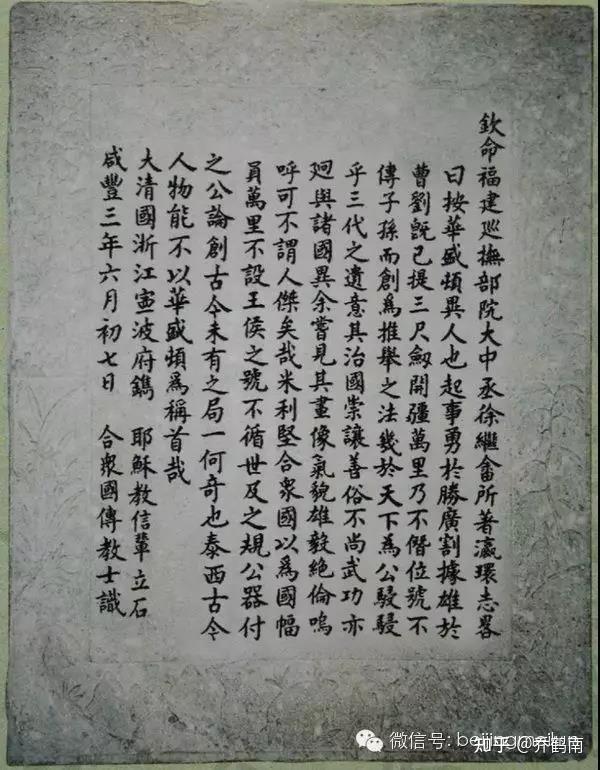 欽命福建巡撫部院大中丞徐繼畬所著瀛環志畧
曰按華盛頓異人也起事勇於勝廣割據雄於
曹劉旣已提三尺劒開疆萬里乃不僭位號不
傳子孫而創爲推舉之法幾於天下爲公駸駸
乎三代之遺意其治國崇讓善俗不尚武功亦
迥與諸國異余嘗見其畫像氣貌雄毅絕倫嗚
呼可不謂人傑矣哉米利堅合衆國以爲國幅
員萬里不設王侯之號不循世及之規公器付
之公論創古今未有之局一何奇也泰西古今
人物能不以華盛頓爲稱首哉
大清國浙江寧波府鐫 耶穌教信輩立石
咸豐三年六月初七日 合衆國傳教士識
微信号: beijingmeikun
知乎 @乔鹤南